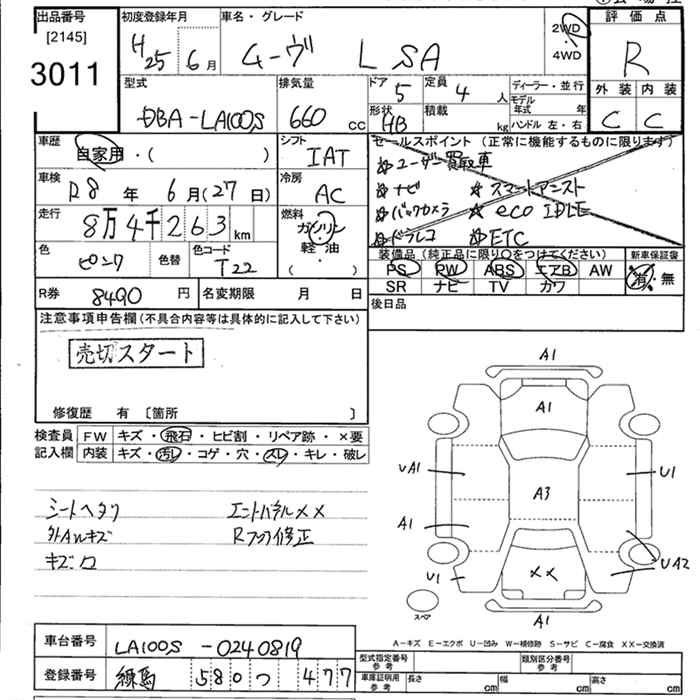 出品番号 初度登録年月 車名・グレード 評価点
[2145]
3011
H25 6月 ムーヴ L SA 2WD・4WD R
外装 内装
C C
型式 排気量 ドア 5 定員 4人 ディーラー・並行
DBA-LA100S 660cc 形状 HB 積載 kg モデル年式 年
ハンドル 左・右
車歴 シフト セールスポイント (正常に機能するものに限ります)
自家用・( ) IAT ☆ユーザー買取車
車検 冷房 ☆ナビ ☆スマートアシスト
R8年 6月(27日) AC ☆バックカメラ ☆eco IDLE
走行 燃料 ☆ドラレコ ☆ETC
8万4千263km ガソリン・軽油・( )
色 色替 色コード 装備品(純正品に限り○をつけてください) 新車保証書
ピンク T22 PS PW ABS エアB AW 有・無
SR ナビ TV カワ
R券 8490円 名変期限 月 日 後日品
注意事項申告欄(不具合内容等は具体的に記入して下さい)
売切スタート
修復歴 有 〔箇所 〕
検査員 FW キズ・飛石・ヒビ割・リペア跡・×要
記入欄 内装 キズ・汚レ・コゲ・穴・スレ・キレ・破レ
シートヘタリ エンドパネルXX
外Awキズ Rフロア修正
キズ□
A1
A1
UA1 U1
A3
A1
UA2
U1 XX
スペア
A1
A-キズ E-エクボ U-凹み W-補修跡 S-サビ C-腐食 XX-交換済
車台番号 LA100S-0240819
登録番号 練馬 580 つ 477
型式指定番号 参考 類別区分番号 参考
車庫証明用 参考 長さ cm 幅 cm 高さ cm